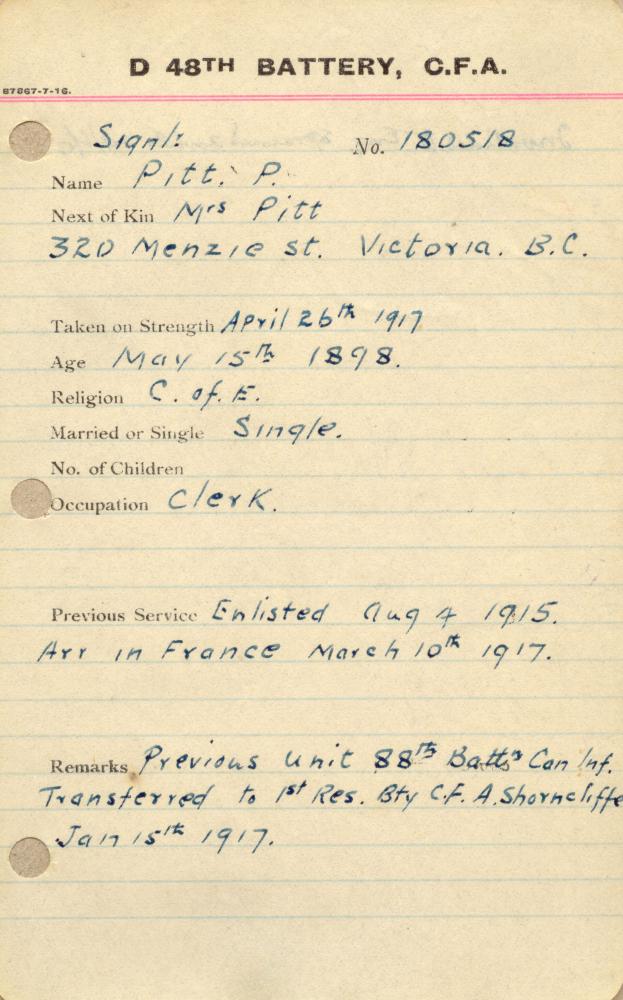 D 48TH BATTERY, C.F.A.
87867-7-16.
Signl: No. 180518
Name Pitt. P.
Next of Kin Mrs Pitt
320 Menzie st. Victoria. B.C.
Taken on Strength April 26th 1917
Age May 15th 1898.
Religion C. of. E.
Married or Single Single.
No. of Children
Occupation Clerk.
Previous Service Enlisted Aug 4 1915.
Arr in France March 10th 1917.
Remarks Previous Unit 88th Battn Can Inf.
Transferred to 1st Res. Bty C.F.A. Shorncliffe
Jan 15th 1917.